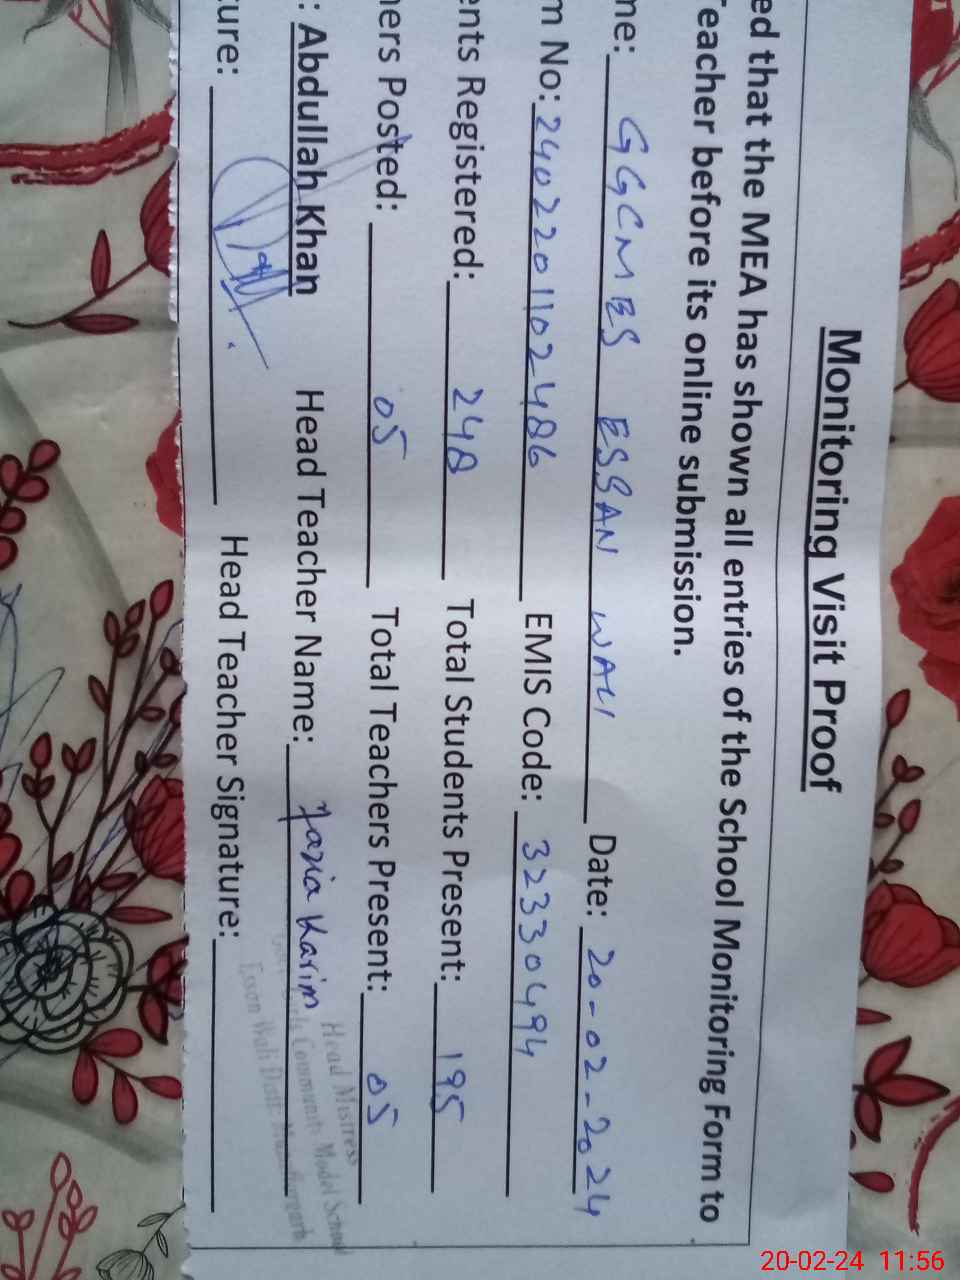 Monitoring Visit Proof
ed that the MEA has shown all entries of the School Monitoring Form to
Teacher before its online submission.
me: GGCMES ESSAN WALI Date: 20-02-2024
m No: 2402201102486 EMIS Code: 32330494
ents Registered: 248 Total Students Present: 195
hers Posted: 05 Total Teachers Present: 05
: Abdullah Khan Head Teacher Name: Nazia Karim
ture: Head Teacher Signature:
Head Mistress
Girls Community Model School
Essan Wali Distt: Muzaffargarh
20-02-24 11:56